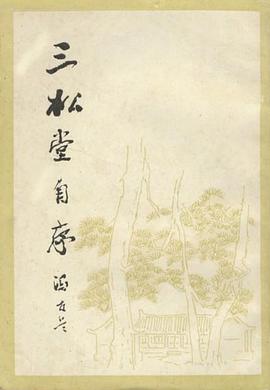 三松堂自序 冯友兰